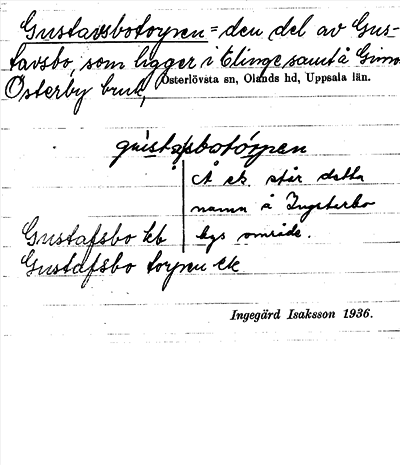 Gustavsbotorpen = den del av Gus-
tavsbo, som ligger i Elinge samt å Gimo
Österby bruk,
Österlövsta sn, Olands hd, Uppsala län.
gustasbotórpen
Å ek. står detta
namn å Ingsterbo
Gustafsbo kb
bys område.
Gustafsbo torpen ek
Ingegärd Isaksson 1936.